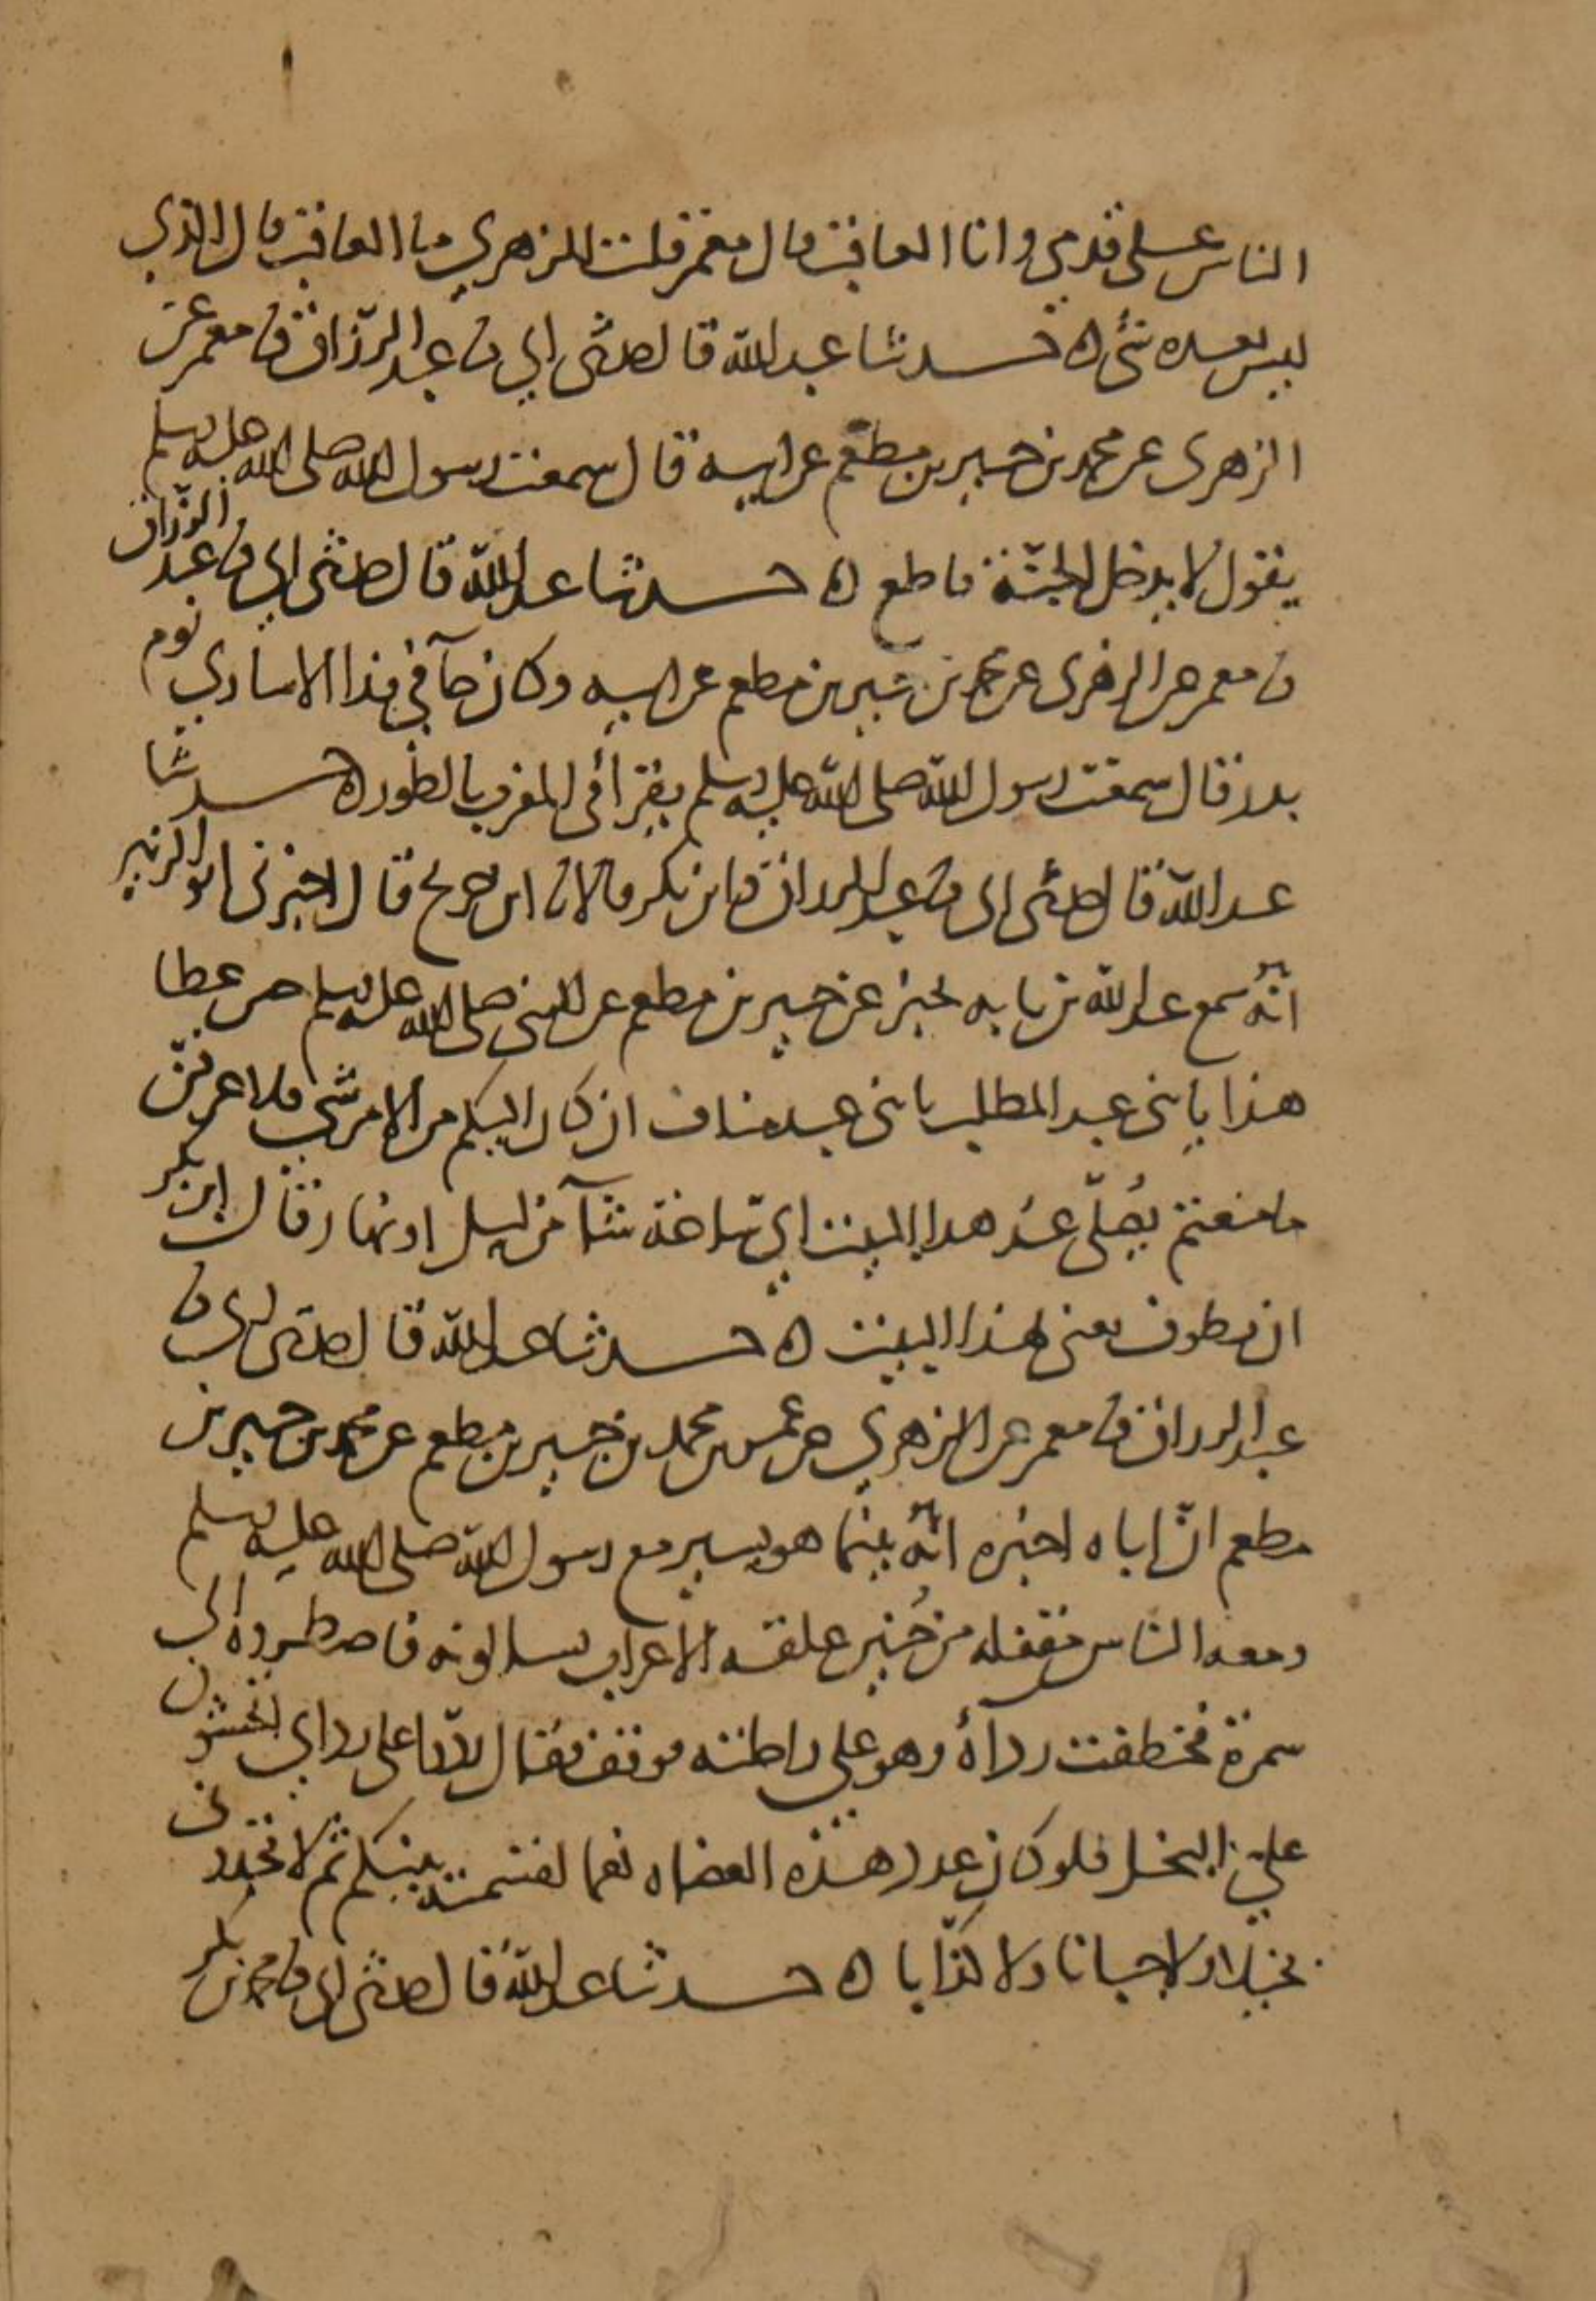 الناس على قدمي وانا العاقب قال معمر قلت للزهري ما العاقب قال الذي
ليس بعده نبي ه حدثنا عبد الله قال حدثني ابي ثنا عبد الرزاق ثنا معمر عن
الزهري عن محمد بن جبير بن مطعم عن ابيه قال سمعت رسول الله صلى الله عليه وسلم
يقول لا يدخل الجنة قاطع ه حدثنا عبد الله قال حدثني ابي ثنا عبد الرزاق
ثنا معمر عن الزهري عن محمد بن جبير بن مطعم عن ابيه وكان جآ في فدا الاسارى يوم
بدر قال سمعت رسول الله صلى الله عليه وسلم يقرأ في المغرب بالطور ه حدثنا
عبد الله قال حدثني ابي ثنا عبد الرزاق وابن بكر قالا انا ابن جريج قال اخبرني ابو الزبير
انه سمع عبد الله بن بابه يخبر عن جبير بن مطعم عن النبي صلى الله عليه وسلم خبر عطا
هذا يا بني عبد المطلب يا بني عبد مناف ان كان اليكم من الامر شي فلا عرفن
ما منعتم يصلي عند هذا البيت اي ساعة شآ من ليل او نهار وقال ابن بكر
ان يطوف يعني بهذا البيت ه حدثنا عبد الله قال حدثني ابي ثنا
عبد الرزاق ثنا معمر عن الزهري عن عمر بن محمد بن جبير بن مطعم عن محمد بن جبير بن
مطعم ان اباه اخبره انه بينما هو يسير مع رسول الله صلى الله عليه وسلم
ومعه الناس مقفله من حنين علقه الاعراب يسالونه فاضطروه الى
سمرة فخطفت رداءه وهو على راحلته فوقف فقال ردوا علي رداي اتخشون
علي البخل فلو كان عدد هذه العضاه نعما لقسمته بينكم ثم لا تجدوني
بخيلا ولا جبانا ولا كذابا ه حدثنا عبد الله قال حدثني ابي ثنا محمد بن بكر